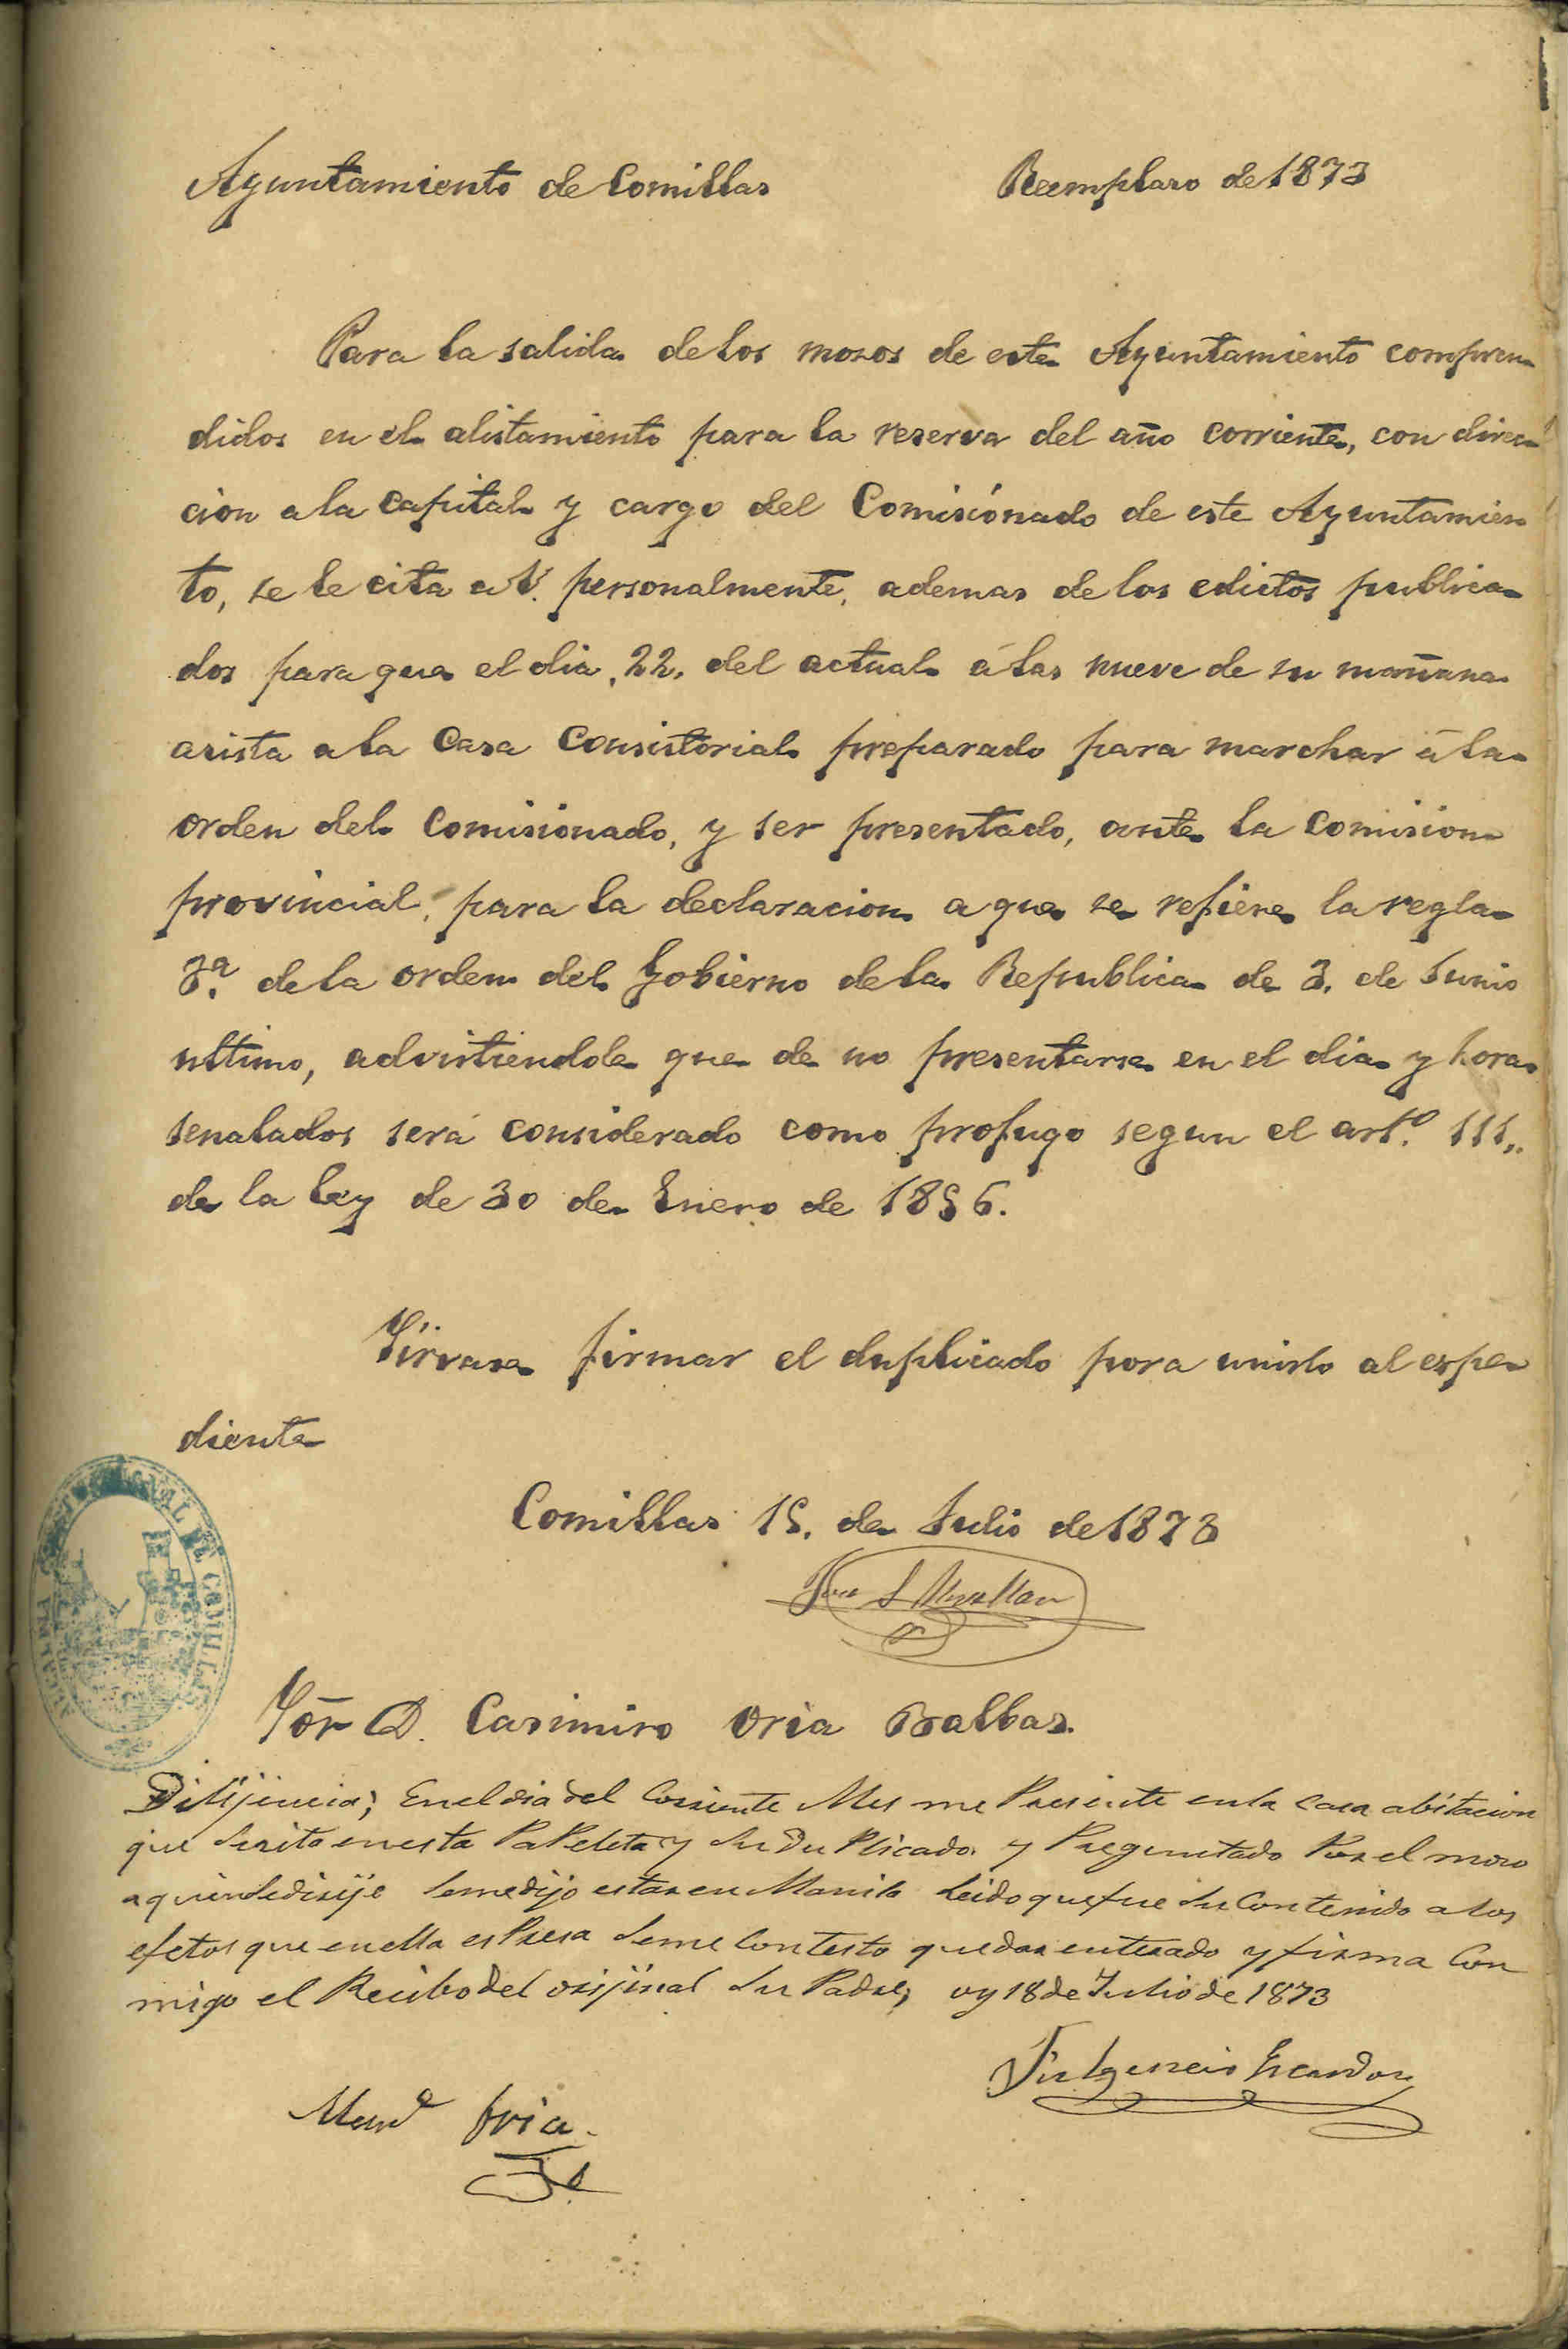 Ayuntamiento de Comillas Reemplazo de 1873
Para la salida de los mozos de este Ayuntamiento compren
didos en el alistamiento para la reserva del año corriente, con direc
cion a la capital y cargo del Comisionado de este Ayuntamien
to, se le cita a V. personalmente, ademas de los edictos publica
dos para que el dia, 22, del actual á las nueve de su mañana
asista a la Casa Consistorial preparado para marchar á la
orden del Comisionado, y ser presentado, ante la Comision
provincial, para la declaracion a que se refiere la regla
3ª. de la orden del Gobierno de la Republica de 3. de Junio
ultimo, advirtiendole que de no presentarse en el dia y hora
senalados será considerado como profugo segun el artº. 111,,
de la ley de 30 de Enero de 1856.
Sirvase firmar el duplicado para unirlo al espe
diente
Comillas 15. de Julio de 1873
Sor D. Casimiro Oria Balbas.
Dilijencia; En el dia del Corriente Mes me Presente en la Casa abitacion
que Sezita en esta PaPeleta y Su Du Plicado y Preguntado Por el mozo
a quien se dirije Seme dijo estar en Manila Leido que fue Su Contenido a los
efetos que en ella es Presa Seme Contesto quedar enterado y firma Con
migo el Recibo del orijinal Su Padre, oy 18 de Julio de 1873
Fulgencio Escandon
Manl Oria